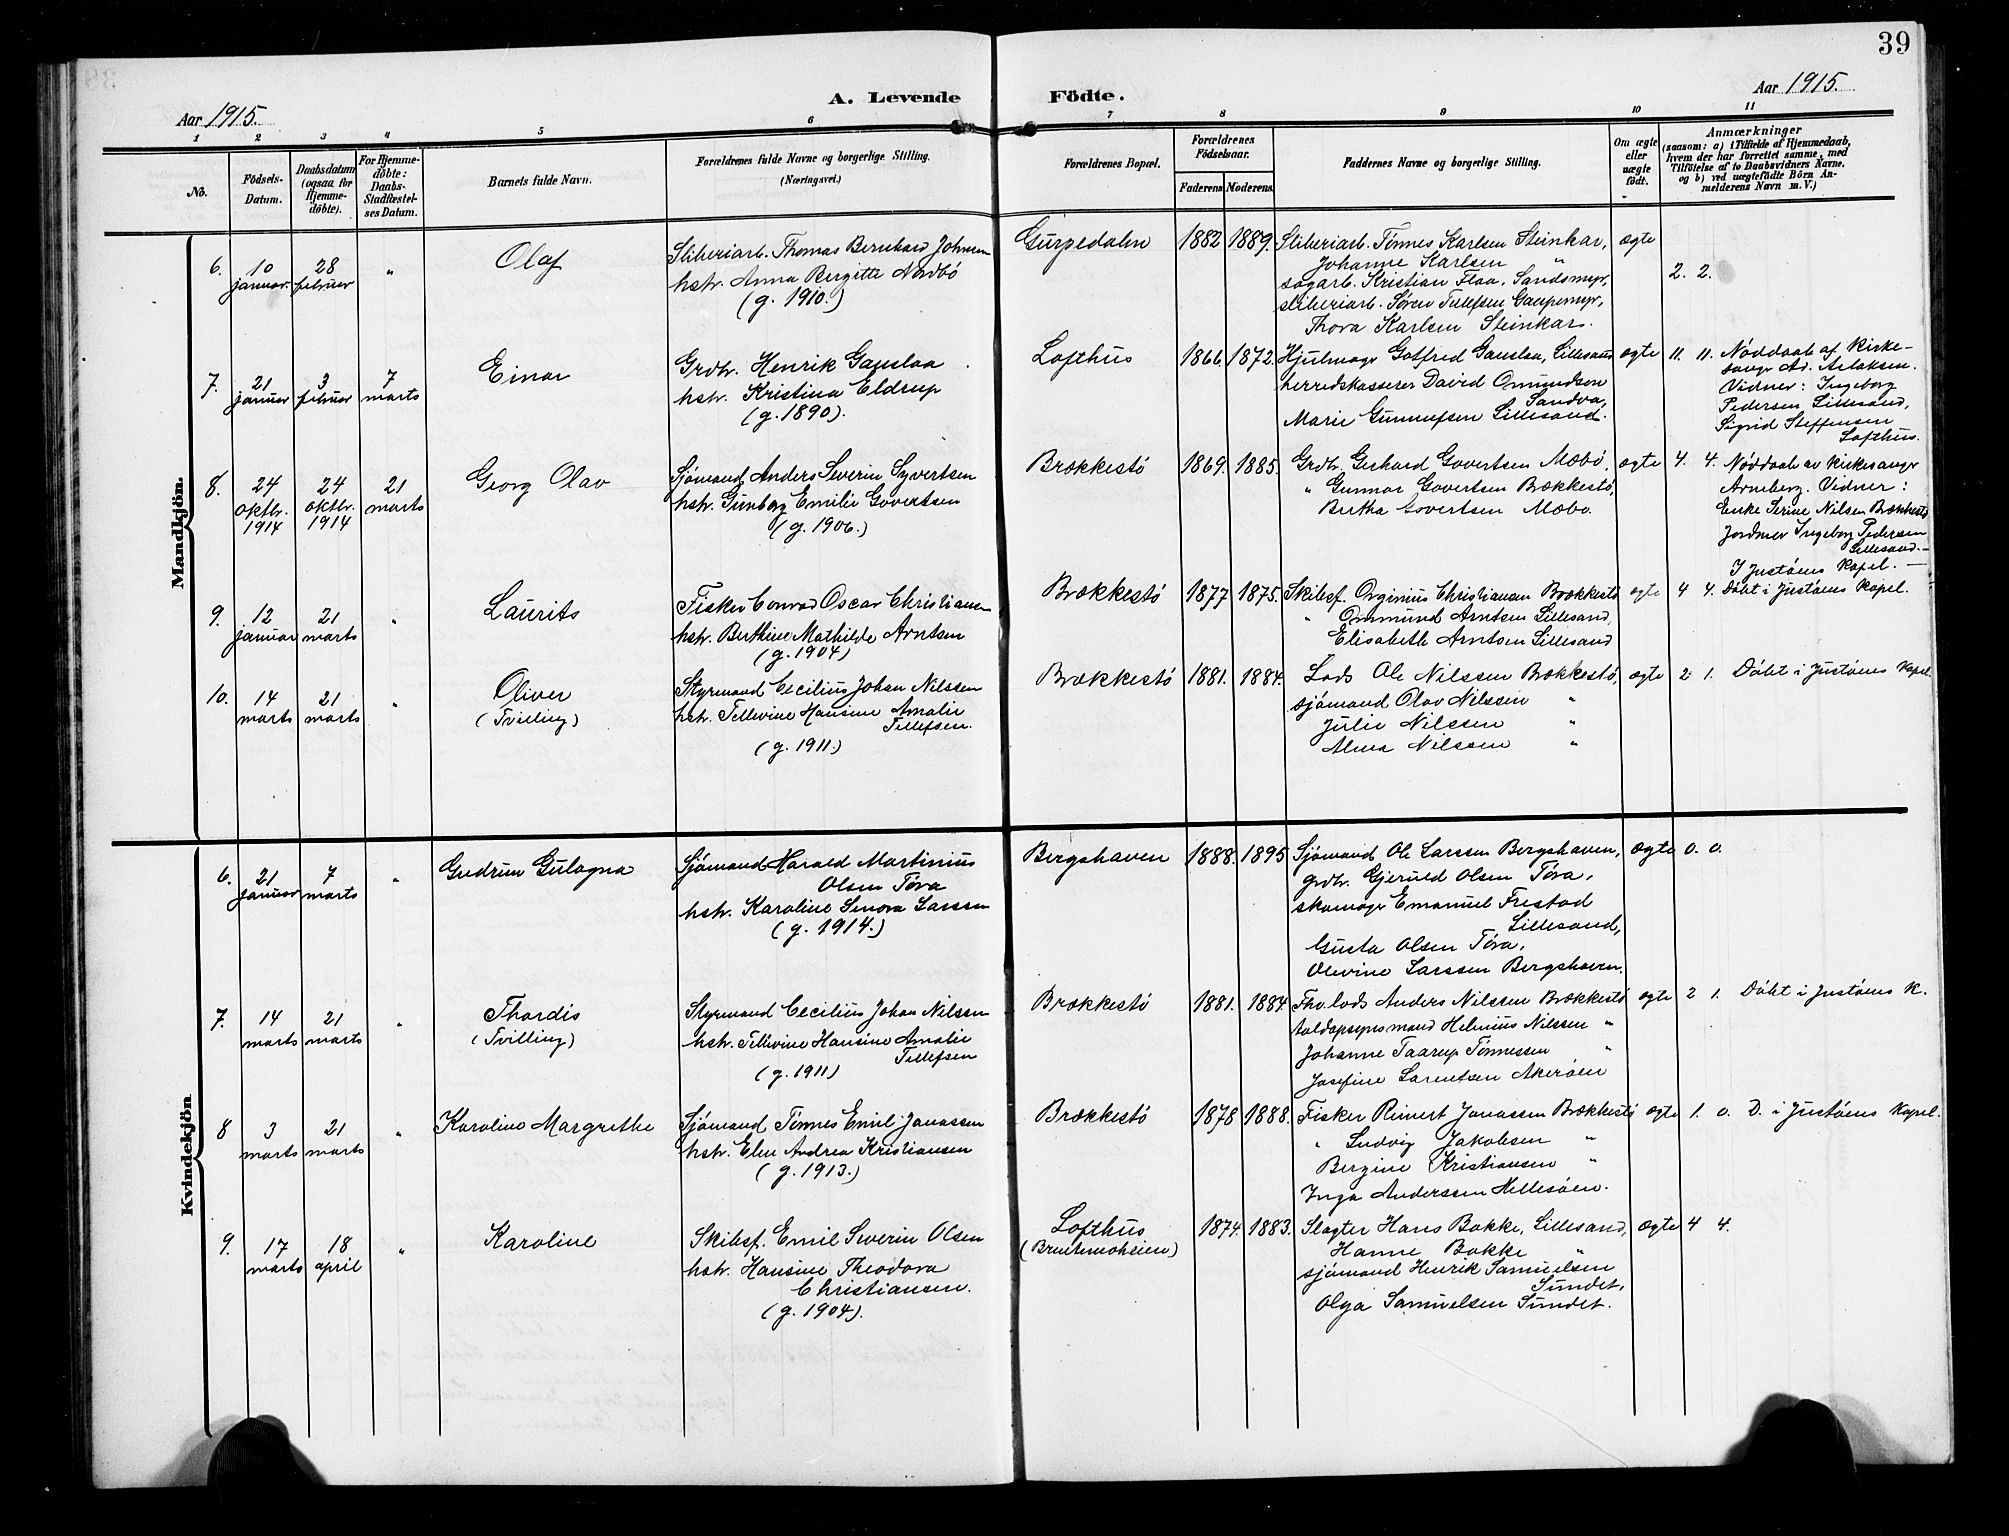 39
Aar 1915.
A. Levende Födte.
Aar 1915.
1 2 3 4 5 6 7 8 9 10 11
No.
Födsels-Datum.
Daabsdatum (ogsaa for Hjemmedöbte).
For Hjemmedöbte: Daabs-Stadfæstelses Datum.
Barnets fulde Navn.
Forældrenes fulde Navne og borgerlige Stilling.
(Næringsvei.)
Forældrenes Bopæl.
Forældrenes Födselsaar.
Faderens. Moderens.
Faddernes Navne og borgerlige Stilling.
Om ægte eller uægte födt.
Anmærkninger
(saasom: a) i Tilfælde af Hjemmedaab, hvem der har forrettet samme, med Tilföielse af to Daabsvidners Navne, og b) ved uægtefödte Börn Anmelderens Navn m. V.)
Mandkjön.
6. 10 januar 28 februar " Olaf
Sliberiarb. Thomas Bernhard Johnsen
hstr. Anna Bergitte Nordbö
(g. 1910.)
Gurpedalen 1882 1889.
Sliberiarb. Tönnes Karlsen Steinkar,
Johanne Karlsen "
sagarb. Kristian Flaa, Sandsmyr,
sliberiarb. Sören Tellefsen Gaupemyr,
Thora Karlsen Steinkar.
ægte 2. 2.
7. 21 januar 3 februar 7 marts Einar
Grdbr. Henrik Gauslaa
hstr. Kristina Eldrup
(g. 1890).
Lofthus 1866. 1872.
Hjulmagr Gotfred Gauslaa, Lillesand
herredskasserer David Omundsen
Sandva,
Marie Gunnufsen Lillesand.
ægte 11. 11.
Nöddaab af Kirke-
sangr Ad. Aslaksen.
Vidner: Ingeborg
Pedersen Lillesand,
Sigrid Steffensen
Lofthus.
8. 24 oktbr. 1914 24 oktbr. 1914 21 marts Georg Olav
Sjömand Anders Severin Syvertsen
hstr. Gunborg Emilie Govertsen
(g. 1906.)
Brækkestö 1869. 1885.
Grdbr. Gerhard Govertsen Mæbö,
" Gunnar Govertsen Brækkestö,
Bertha Govertsen Mæbö.
ægte 4. 4.
Nöddaab av Kirkesangr
Arneberg. Vidner:
Enke Serine Nilsen Brækkestö
Jordmor Ingeborg Pedersen
Lillesand.—
I Justöens Kapel. —
9. 12 januar 21 marts " Laurits
Fisker Conrad Oscar Christiansen
hstr. Berthine Mathilde Arntsen
(g. 1904)
Brækkestö 1877 1875.
Skibsf. Orginius Christiansen Brækkestö
" Ommund Arntsen Lillesand,
Elisabeth Arntsen Lillesand
ægte 4 4. Döbt i Justöens Kapel.
10. 14 marts 21 marts " Oliver
(Tvilling)
Styrmand Cecilius Johan Nilssen
hstr. Tellevine Hansine Amalie
Tellefsen.
(g. 1911.)
Brækkestö 1881. 1884.
Lods Ole Nilssen Brækkestö,
sjömand Olav Nilssen "
Julie Nilssen "
Alma Nilssen "
ægte 2. 1. Döbt i Justöens Kapel.
Kvindekjön
6. 21 januar 7 marts " Gudrun Gulagna
Sjömand Harald Martinius
Olsen Töra
hstr. Karoline Senora Larssen
(g. 1914.)
Bergshaven 1888. 1895
Sjömand Ole Larssen Bergshaven,
grdbr. Gjeruld Olsen Töra,
skomagr Emanuel Frestad
Lillesand,
Gusta Olsen Töra,
Olevine Larssen Bergshaven.
ægte 0. 0.
7. 14 marts 21 marts " Thordis
(Tvilling)
Styrmand Cecilius Johan Nilssen
hstr. Tellevine Hansine Amalie
Tellefsen
(g. 1911)
Brækkestö 1881. 1884.
Thv. lods Anders Nilssen Brækkestö
toldopsynsmand Helmius Nilssen "
Johanne Taarup Tönnessen "
Josefine Larentsen Akeröen
ægte 2 1. Döbt i Justöens K.
8 3 marts 21 marts " Karoline Margrethe
Sjömand Tönnes Emil Jonassen
hstr. Elen Andrea Kristiansen
(g. 1913.)
Brækkestö 1878 1888.
Fisker Reinert Jonassen Brækkestö
" Ludvig Jakobsen "
Bergine Kristiansen "
Inga Anderssen Hellesöen.
ægte 1. 0. D. i Justöens Kapel.
9. 17 marts 18 april " Karoline
Skibsf. Emil Severin Olsen
hstr. Hansine Theodora
Christiansen.
(g. 1904).
Lofthus 1874. 1883.
Slagter Hans Bakke, Lillesand,
Hanne Bakke "
sjömand Henrik Samuelsen
Sundet,
Olga Samuelsen Sundet.
ægte 4 4.